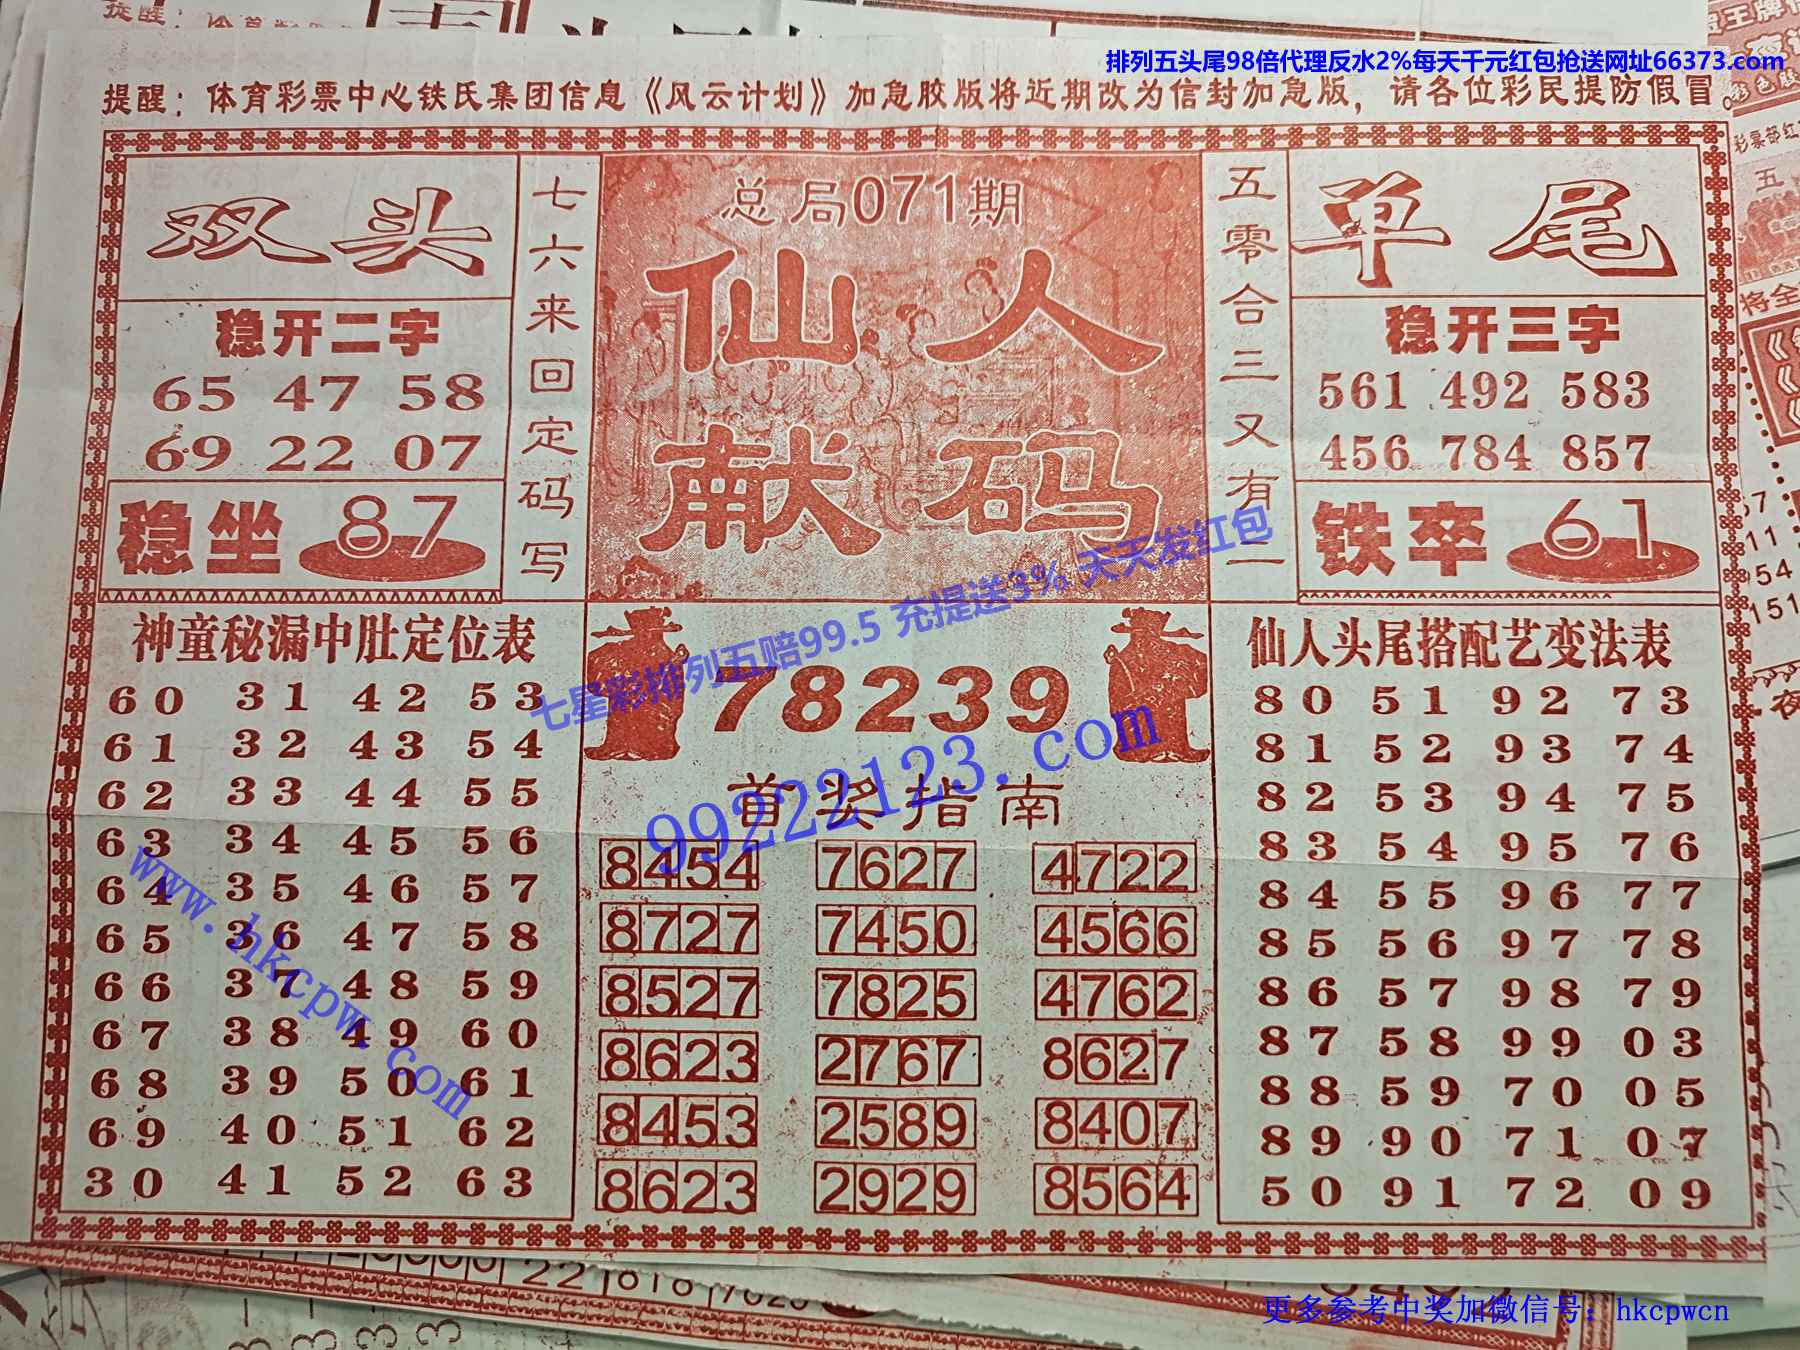 排列五头尾98倍代理反水2%每天千元红包抢送网址66373.com
提醒：体育彩票中心铁氏集团信息《风云计划》加急胶版将近期改为信封加急版，请各位彩民提防假冒。
双头
稳开二字
65 47 58
69 22 07
稳坐 87
七六来回定码写
总局071期
仙人
献码
五零合三又有二
单尾
稳开三字
561 492 583
456 784 857
铁卒 61
七星彩排列五赔99.5 充提送3% 天天发红包
99222123.com
www.hkcpw.com
神童秘漏中肚定位表
60 31 42 53
61 32 43 54
62 33 44 55
63 34 45 56
64 35 46 57
65 36 47 58
66 37 48 59
67 38 49 60
68 39 50 61
69 40 51 62
30 41 52 63
78239
首奖指南
8454 7627 4722
8727 7450 4566
8527 7825 4762
8623 2767 8627
8453 2589 8407
8623 2929 8564
仙人头尾搭配艺变法表
80 51 92 73
81 52 93 74
82 53 94 75
83 54 95 76
84 55 96 77
85 56 97 78
86 57 98 79
87 58 99 03
88 59 70 05
89 90 71 07
50 91 72 09
更多参考中奖加微信号：hkcpwcn